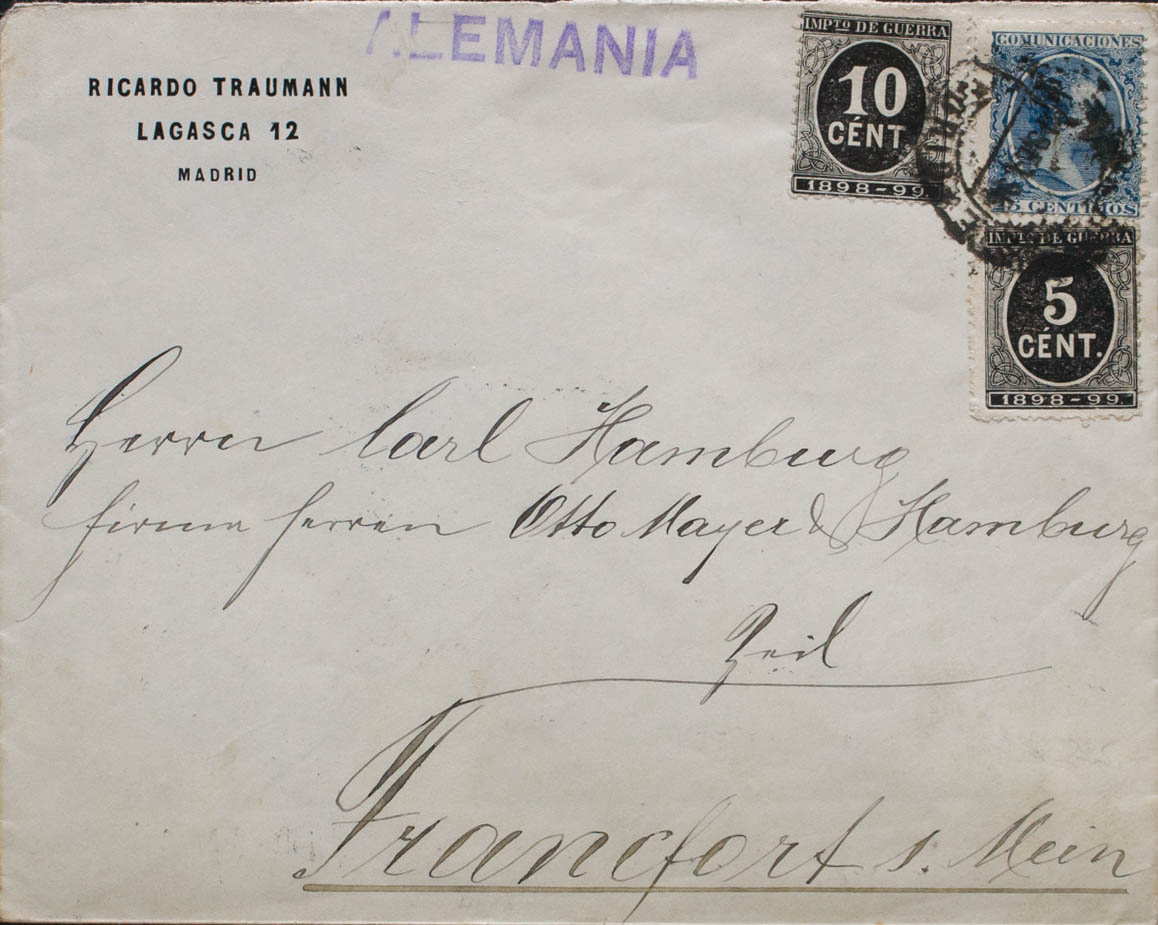 ALEMANIA
RICARDO TRAUMANN
LAGASCA 12
MADRID
IMPTO DE GUERRA
10
CÉNT.
1898-99.
COMUNICACIONES
CENTIMOS
IMPTO DE GUERRA
5
CÉNT.
1898-99.
Herrn Carl Hamburg
Firma Herren Otto Mayer & Hamburg
Zeil
Francfort s. Mein